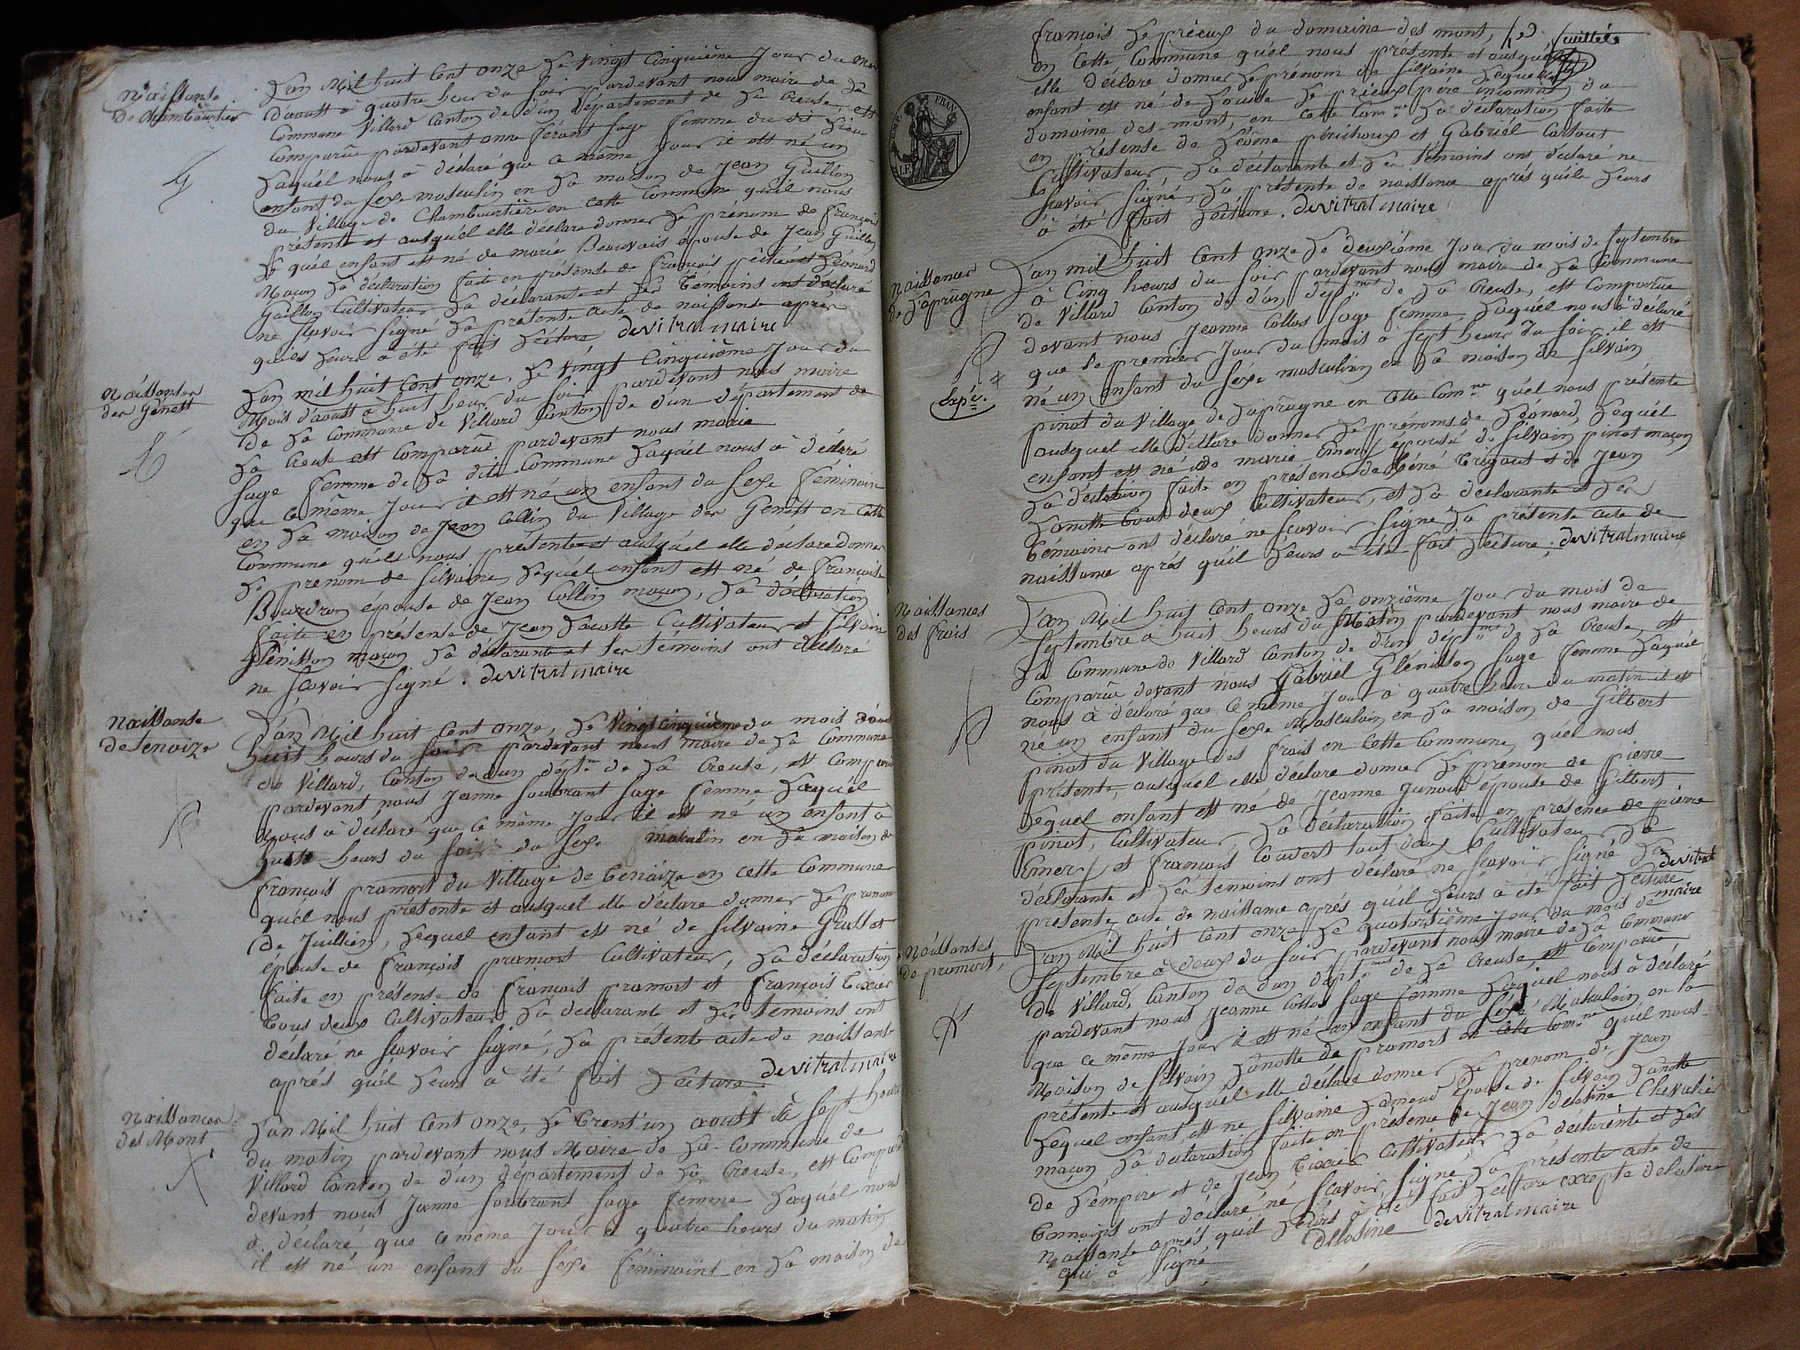 Naissanse
de Chambourtier
L'an Mil huit Cent onze Le Vingt Cinquième Jour du Moi
d'aoust à quatre heur du soir pardevant nous maire de La
Commune Villard Canton de d'un département de La Creuse, est
Comparüe pardevant anne férant sage femme du dit Lieu
Laquél nous à déclaré que a même jour il est né un
enfant du sexe masculin en La maison de Jean Guillon
du Village de Chambourtière en cette Commune quél nous
présente et auquél elle déclare donner Le prénom de françois
Le quél enfant est né de marie Beauvais épouse de Jean Guillon
Maçon La déclaration faite en présense de françois et Léonard
Guillon Cultivateur La déclarante et Les témoins ont déclaré
ne sçavoir signé La présente acte de naissanse après
quéls Leurs a été fait Lecture devitrat maire
Naissanses
des Genest
L'an mil huit Cent onze, Le vingt Cinquième Jour du
Mois d'aoust à huit heur du soir pardevant nous maire
de La Commune de Villard Canton de dun département de
La Creuse est Comparüe pardevant nous marie
sage femme de La dite Commune Laquél nous à déclaré
que Ce même Jour il est né un enfant du sexe féminin
en La maison de Jean Collin du Village des Genest en Cette
Commune quéle nous présente et auquél elle déclare donner
Le prénom de silvaine Lequél enfant est né de françoise
Bourdron épouse de Jean Collin maçon, La déclaration
faite en présense de Jean Lacotte Cultivateur et silvain
Glénisson maçon La déclarante et les témoins ont déclaré
ne sçavoir signé. devitrat maire
Naissanse
de tenaize
L'an Mil huit Cent onze, Le Vingt cinquième du mois d'aout
huit heurs du soir pardevant nous maire de La Commune
de Villard, Canton de dun dépt. de La Creuse, est Comparu
pardevant nous Jeanne soubrant sage femme Laquél
Nous à déclaré que Ce même jour il est né un enfant à
huit heurs du soir du sexe masculin en La maison de
françois pramort du Village de tenaize en cette Commune
quél nous présente et auquel elle déclare donner Le prénom
de Juillien, Lequel enfant est né de silvaine Grallot
épouse de françois pramort Cultivateur, La déclaration
faite en présense de françois pramort et françois tixier
tous deux Cultivateur La déclarante et Les témoins ont
déclaré ne sçavoir signé, La présente acte de naissanse
aprés quél Leurs a été fait Lecture devitrat maire
Naissances
des Mont
L'an Mil huit Cent onze, Le trent'un aoust à sept heurs
du matin pardevant nous Maire de La Commune de
Villard Canton de d'un département de La Creuse, est Comparu
devant nous Janne soubrant sage femme Laquél nous
à déclaré que ce même Jour à quatre heurs du matin
il est né un enfant du séxe féminins en La maison de
françois Le prieux du domaine des mont,
feuillets
en Cette Commune quél nous présente et auquél
elle déclare donner Le prénom de silvaine Lequel
enfant est né de Louise Le prieux père inconnu du
domaine des mont, en cette Com.ne La déclaration faite
en présense de Léome péruchoux et Gabriél Cartaut
Cultivateur, La déclarante et Les témoins ont déclaré ne
sçavoir signé, La présente de naissance aprés quéle Leurs
à été fait Lecture. devitrat maire
Naissances
de Laprugne
L'an mil huit Cent onze Le deuxième Jour du mois de septembre
à Cinq heurs du soir pardevant nous maire de La Commune
de Villard Canton de d'un, dépt. de La Creuse, est Comparüe
devant nous Jeanne Collas sage femme Laquél nous à déclaré
que Le premier Jour du mois à sept heurs du soir il est
né un enfant du sexe masculin en La maison de silvain
Expé.
pinot du Village de Laprugne en Cette Com.ne quél nous présente
auquel elle déclare donner Le prénoms de Léonard, Lequél
enfant est né de marie émery épouse de silvain pinot maçon
La déclaration faite en présence de Léné trigaut et de Jean
Lanotte tout deux Cultivateur, et La déclarante et Les
témoins ont déclaré ne sçavoir signé La présente acte de
naissanse aprés quél Leurs à été fait Lecture. devitrat maire
Naissances
des frais
L'an Mil huit Cent onze Le onzième Jour du mois de
septembre à huit heurs du Matin pardevant nous maire de
La Commune de Villard Canton de dun dépt. de La Creuse, est
Comparüe devant nous Gabriél Glénisson sage femme Laquél
nous à déclaré que Ce même Jour à quatre heure du matin il est
né un enfant du sexe Masculin en La maison de Gilbert
pinot du Village des frais en cette Commune, quél nous
présente, auquel elle déclare donner Le prénom de pierre
Lequel enfant est né de Jeanne Junout épouse de Gilbert
pinot, Cultivateur La déclaration faite en présence de pierre
Emery et françois Couvert tout deux Cultivateur La
déclarante et Les témoins ont déclaré ne sçavoir signé La
présente acte de naissanse aprés quél Leurs à été fait Lecture devitrat
maire
Naissanses
de pramort,
L'an Mil huit Cent onze Le quatorzième Jour du mois de
septembre à deux du soir pardevant nous maire de La Commune
de Villard, Canton de dun dépt. de La Creuse est Comparüe
pardevant nous Jeanne Collas sage femme Laquel nous à déclaré
que ce même Jour il est né un enfant du séxe Masculain en La
Maison de silvain Lanotte de pramort et Cette Com.ne quél nous
présente et auquél elle déclare donner Le prénom de Jean
Lequel enfant est né silvaine Lameau épouse de silvain Lanotte
maçon La déclaration faite en présence de Jean delatine Chevalié
de L'empire et de Jean tixier Cultivateur La déclarante et Les
témoins ont déclaré né sçavoir signé, La présente acte de
naissanse aprés quél Leurs à été fait Lecture excepte delatine
qui à signé delatine devitrat maire